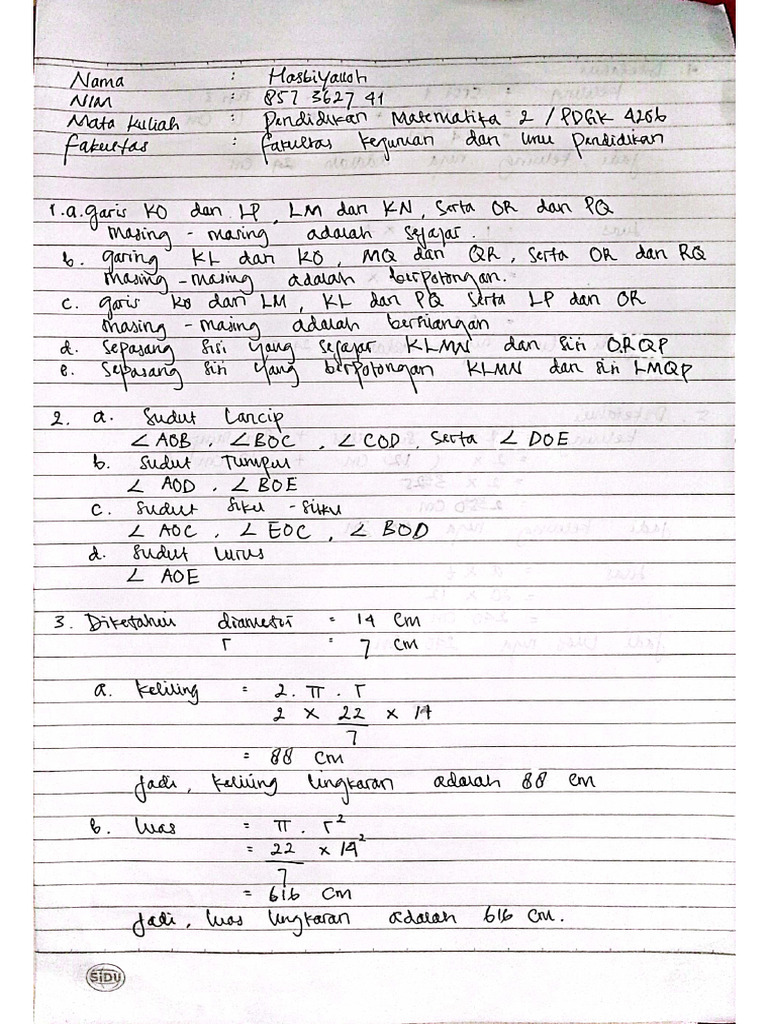 Nama : Hasbiyalloh
NIM : 857 3627 41
Mata Kuliah : Pendidikan Matematika 2 / PDGK 4206
Fakultas : Fakultas Keguruan dan Ilmu Pendidikan
1. a. Garis KO dan LP, LM dan KN, Serta OR dan PQ
masing - masing adalah sejajar.
b. garing KL dan KO, MQ dan QR, Serta OR dan RQ
masing - masing adalah berpotongan.
c. garis KO dan LM, KL dan PQ Serta LP dan OR
masing - masing adalah bersilangan
d. Sepasang sisi yang sejajar KLMN dan sisi ORQP
e. Sepasang sisi yang berpotongan KLMN dan sisi LMQP
2. a. Sudut Lancip
∠ AOB, ∠ BOC, ∠ COD, Serta ∠ DOE
b. Sudut Tumpul
∠ AOD, ∠ BOE
c. Sudut Siku - Siku
∠ AOC, ∠ EOC, ∠ BOD
d. Sudut Lurus
∠ AOE
3. Diketahui diameter = 14 cm
r = 7 cm
a. Keliling = 2. π . r
2 x 22 x 14
7
= 88 cm
Jadi, Keliling lingkaran adalah 88 cm
b. Luas = π . r²
= 22 x 14²
7
= 616 cm
Jadi, luas lingkaran adalah 616 cm.
SiDU